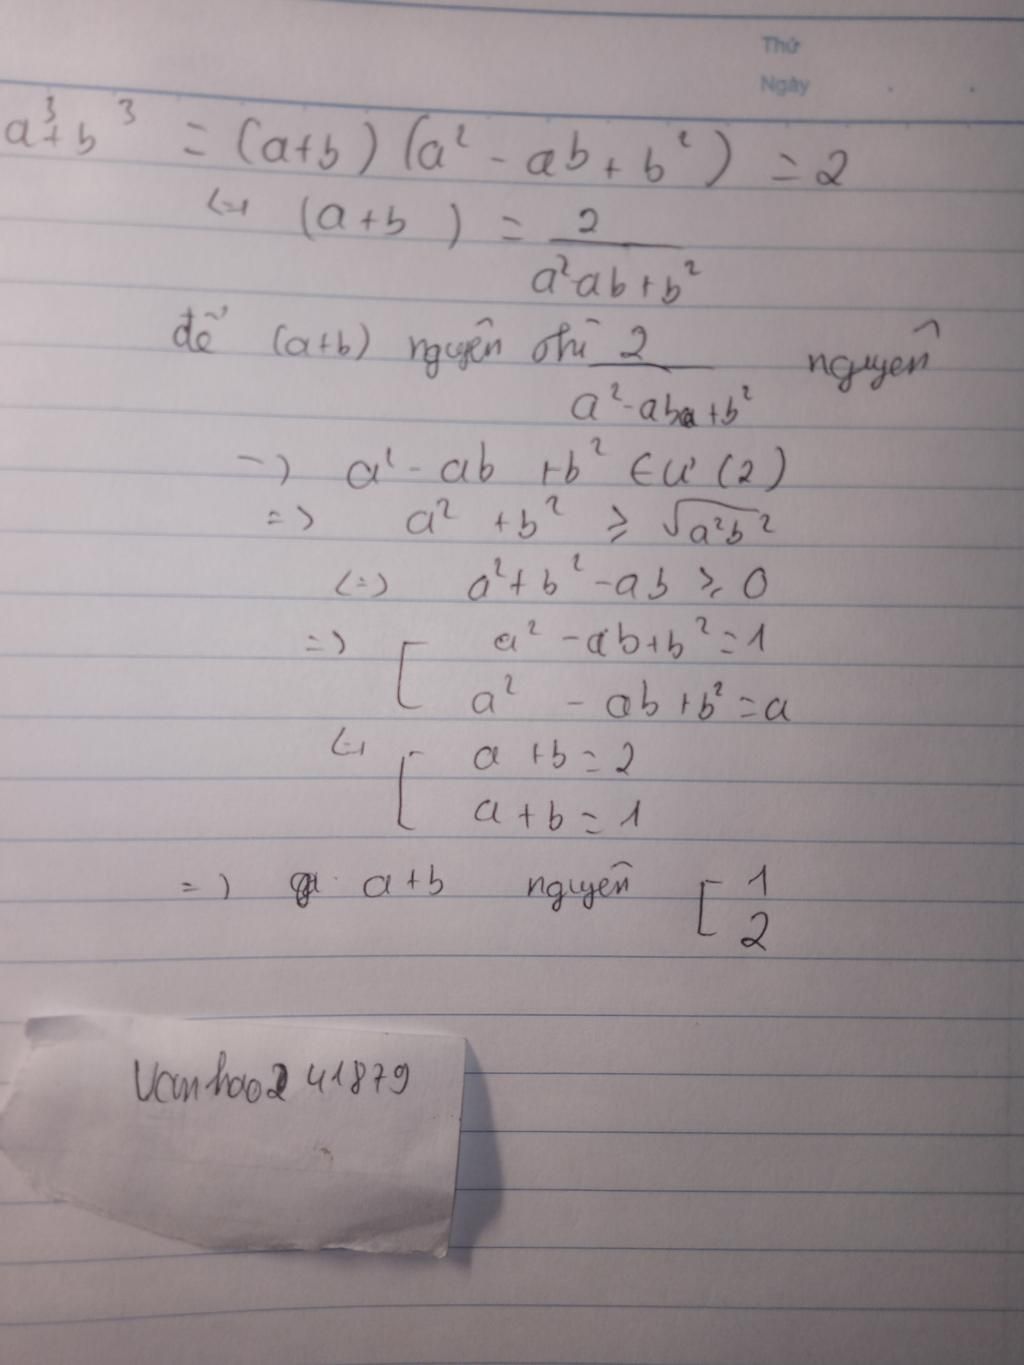 Thứ
Ngày
a³+b³ = (a+b) (a² - ab + b²) = 2
(=) (a+b) = 2/(a² ab + b²)
để (a+b) nguyên thì 2/(a² - ab + b²) nguyên
=) a² - ab + b² ∈ Ư (2)
=> a² + b² ≥ √a²b²
(=) a² + b² - ab ≥ 0
=) [ a² - ab + b² = 1
a² - ab + b² = a
(=) [ a + b = 2
a + b = 1
=) a+b nguyên [ 1
2
Vanhao2 41879